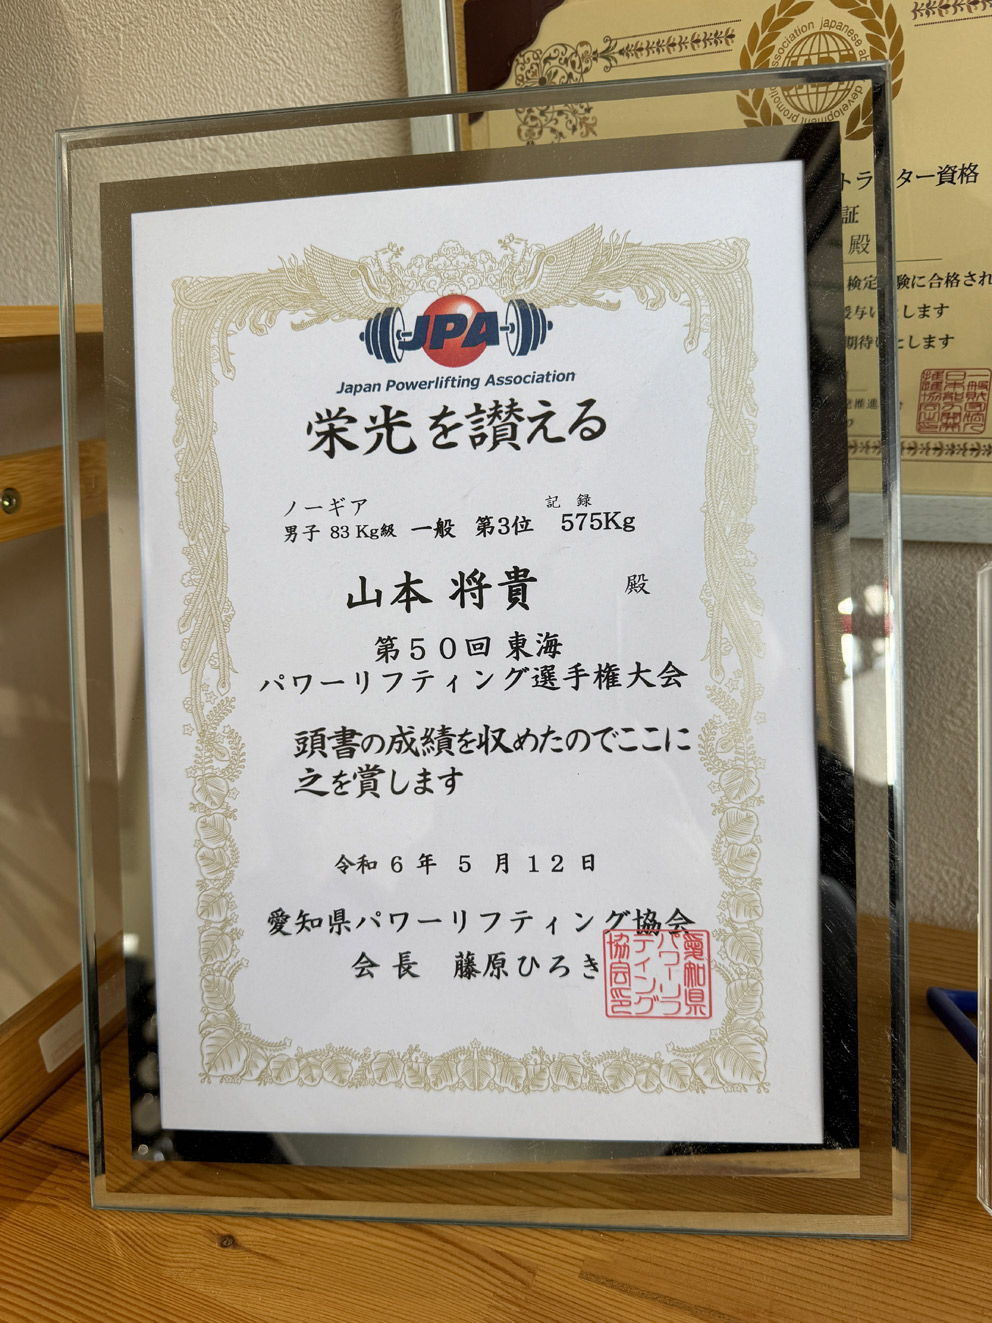 JPA
Japan Powerlifting Association
栄光を讃える
ノーギア 記録
男子 83 Kg級 一般 第3位 575Kg
山本 将貴 殿
第50回 東海
パワーリフティング選手権大会
頭書の成績を収めたのでここに
之を賞します
令和 6 年 5 月 12 日
愛知県パワーリフティング協会
会長 藤原ひろき
愛知県
パワーリフ
ティング
協会印
association japanese
development promotion
ター資格
証
殿
検定 験に合格され
与い します
期待い とします
推進